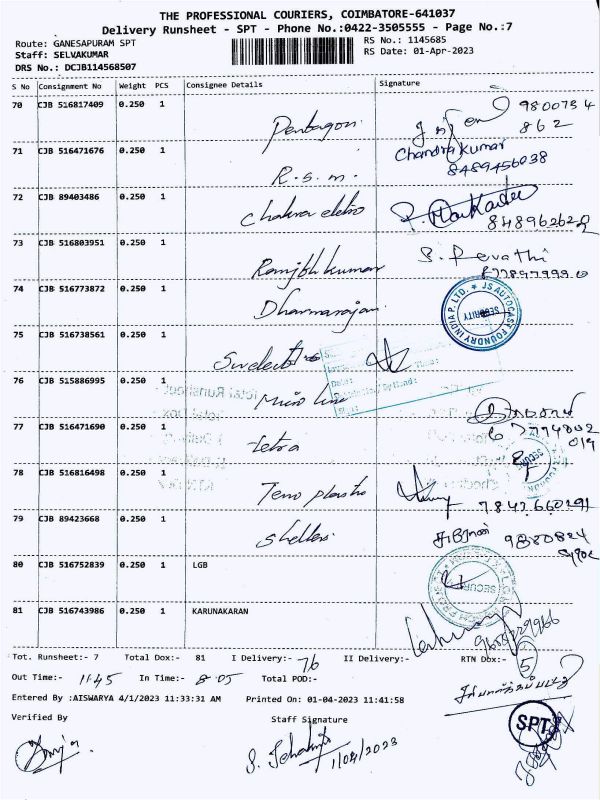 THE PROFESSIONAL COURIERS, COIMBATORE-641037
Delivery Runsheet - SPT - Phone No.:0422-3505555 - Page No.:7
Route: GANESAPURAM SPT
RS No.: 1145685
Staff: SELVAKUMAR
RS Date: 01-Apr-2023
DRS No.: DCJB114568507
S No Consignment No Weight PCS Consignee Details Signature
70 CJB 516817409 0.250 1 Pentagon 9800734
862
71 CJB 516471676 0.250 1 R.s.m. Chandra Kumar
8489456038
72 CJB 89403486 0.250 1 chakra eletro
8489626202
73 CJB 516803951 0.250 1 Ramjbh kumar S. Revathi
74 CJB 516773872 0.250 1 Dharmarajan JS AUTOCAST FOUNDRY INDIA P. LTD. SECURITY
75 CJB 516738561 0.250 1
76 CJB 515886995 0.250 1
77 CJB 516471690 0.250 1 tetra 7774802
019
78 CJB 516816498 0.250 1 Teno plastic 7842660291
79 CJB 89423668 0.250 1 9380824
80 CJB 516752839 0.250 1 LGB SECURITY
81 CJB 516743986 0.250 1 KARUNAKARAN
Tot. Runsheet:- 7 Total Dox:- 81 I Delivery:- 76 II Delivery:- RTN Dox:- 5
Out Time:- 11.45 In Time:- 8.05 Total POD:-
Entered By :AISWARYA 4/1/2023 11:33:31 AM Printed On: 01-04-2023 11:41:58
Verified By Staff Signature
SPT
1/04/2023